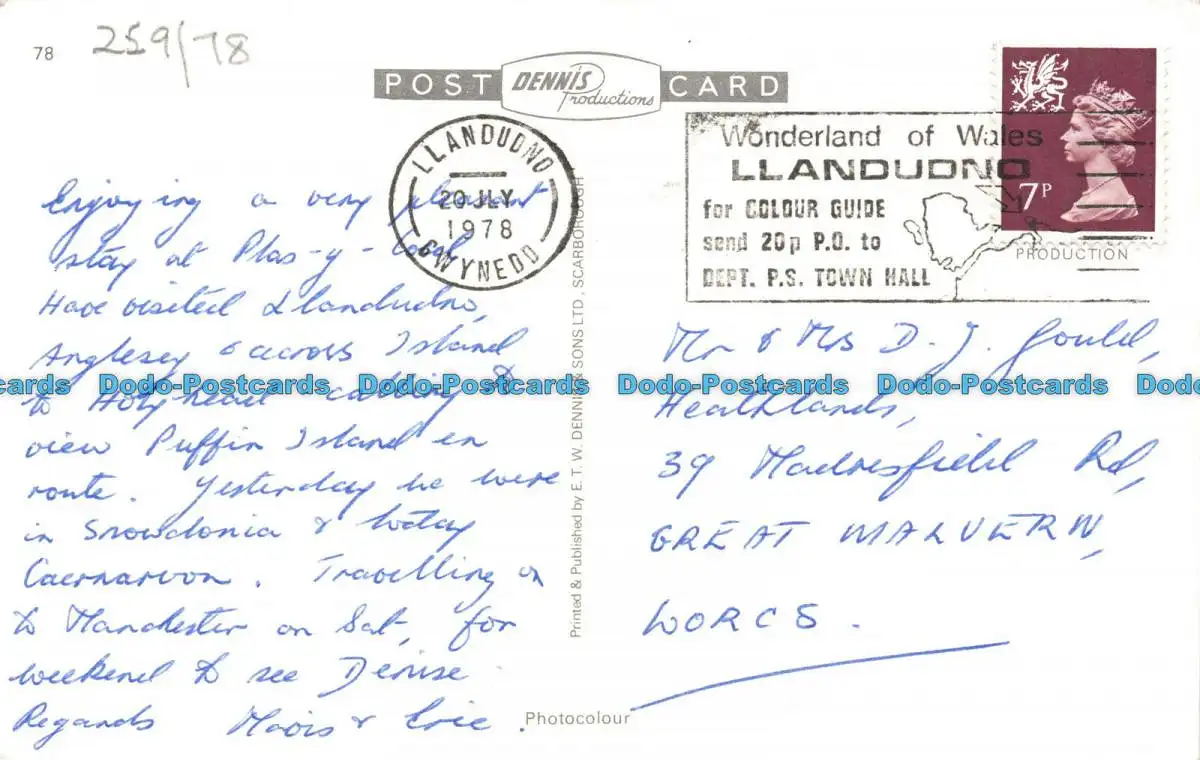 78
259/78
POST
DENNIS
Productions
CARD
LLANDUDNO
20 JLY
1978
GWYNEDD
Wonderland of Wales
LLANDUDNO
for COLOUR GUIDE
send 20p P.O. to
DEPT. P.S. TOWN HALL
7P
PRODUCTION
Enjoying a very pleasant
stay at Plas-y-
Have visited Llandudno,
Anglesey & across Island
to Holyhead calling to
view Puffin Island en
route. Yesterday we were
in Snowdonia & today
Caernarvon. Travelling on
to Manchester on Sat, for
weekend to see Denise
Regards & Eric.
Printed & Published by E. T. W. DENNIS & SONS LTD., SCARBOROUGH
Mr & Mrs D. J. Gould,
Heathlands,
39 Madresfield Rd,
GREAT MALVERN,
WORCS.
Photocolour
Dodo-Postcards Dodo-Postcards Dodo-Postcards Dodo-Postcards Dodo-Postcards